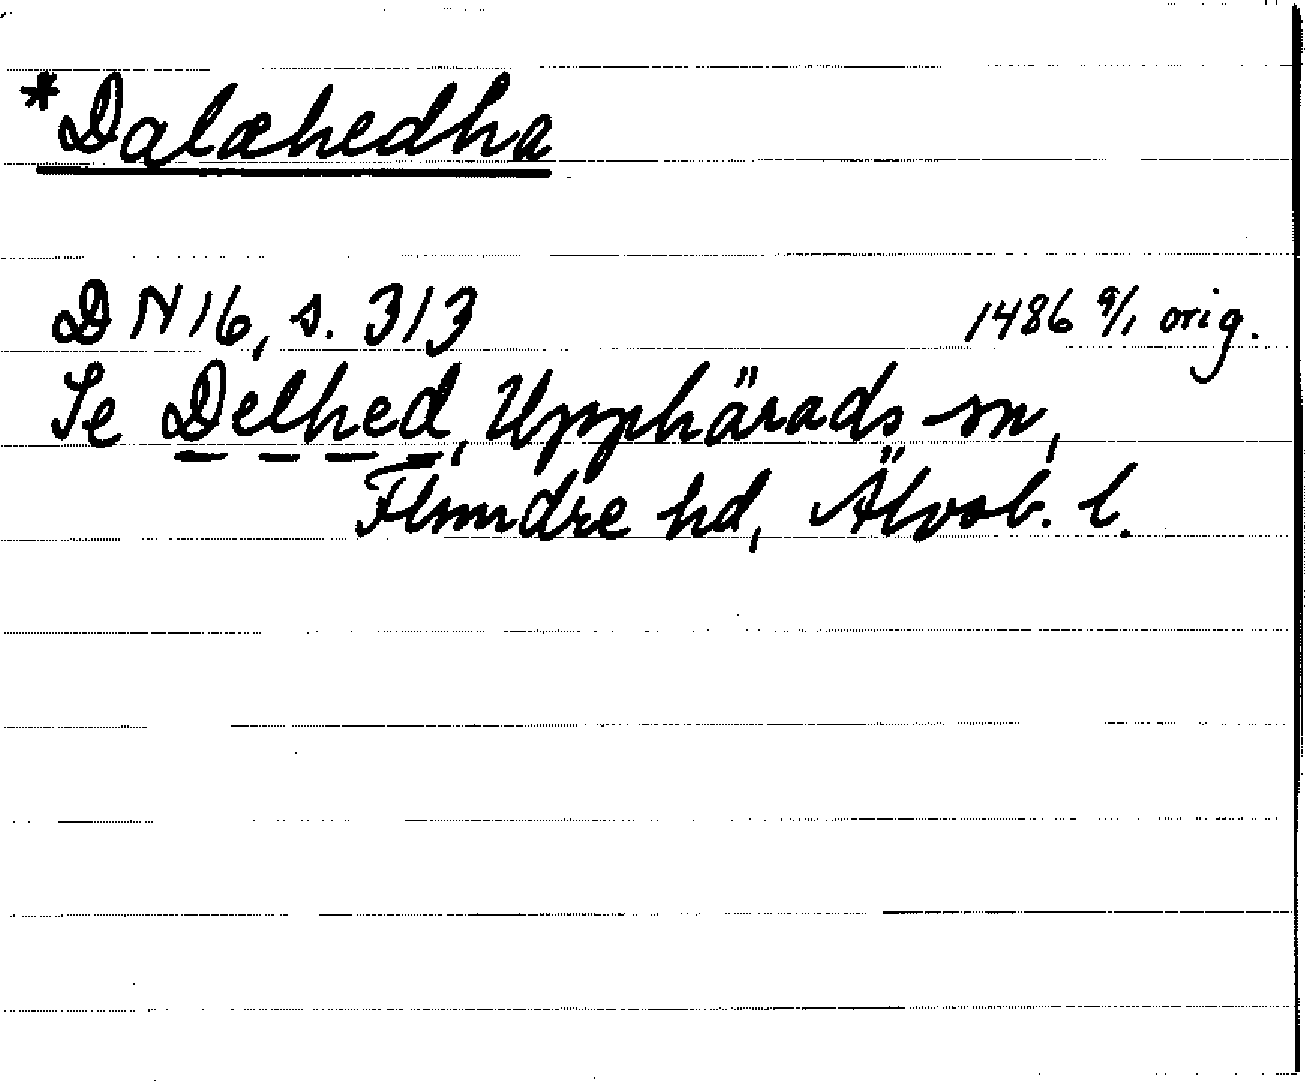 *Dalæhedha
DN 16, s. 313 1486 9/1 orig.
Se Delhed, Upphärads sn,
Flundre hd, Älvsb. l.